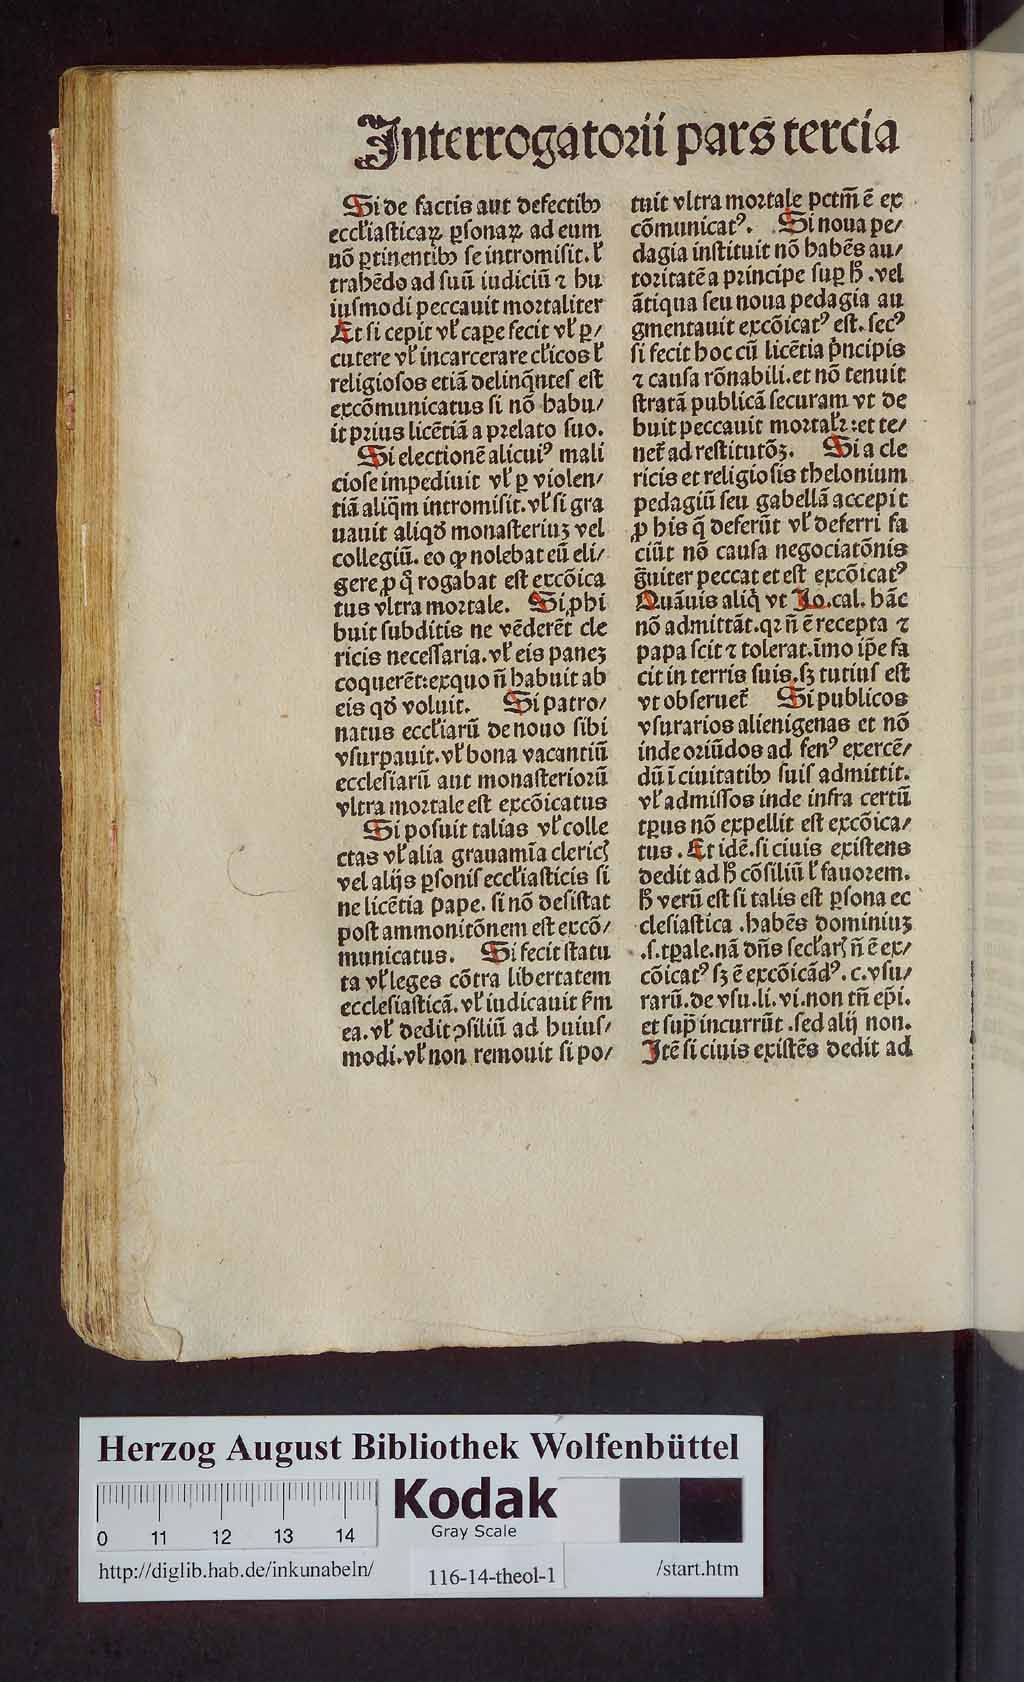 Interrogatorii pars tercia
Si de factis aut defectibꝰ
eccl'iasticaꝝ ꝑsonaꝝ ad eum
nō ꝑtinentibꝰ se intromisit. l'
trahēdo ad suū iudiciū ⁊ hu
iusmodi peccauit mortaliter
Et si cepit vl' caꝑe fecit vl' ꝑ/
cutere vl' incarcerare cl'icos l'
religiosos etiā delinq̄ntes est
excōmunicatus si nō habu/
it prius licētiā a prelato suo.
Si electionē alicuiꝰ mali
ciose impediuit vl' ꝑ violen/
tiā aliq̄m intromisit. vl' si gra
uauit aliqd̓ monasteriuꝫ vel
collegiū. eo ꝙ nolebat eū eli/
gere ꝓ q̊ rogabat est excōica
tus vltra mortale. Si ꝓhi
buit subditis ne vēderēt cle
ricis necessaria. vl' eis paneꝫ
coquerēt: exquo n̄ habuit ab
eis qd̓ voluit. Si patro/
natus eccl'iarū de nouo sibi
vsurpauit. vl' bona vacantiū
ecclesiarū aut monasteriorū
vltra mortale est excōicatus
Si posuit talias vl' colle
ctas vl' alia grauamīa clericꝭ
vel alijs ꝑsonis eccl'iasticis si
ne licētia pape. si nō desistat
post ammonitōnem est excō/
municatus. Si fecit statu
ta vl' leges cōtra libertatem
ecclesiasticā. vl' iudicauit ẜm
ea. vl' dedit ꝯsiliū ad huius/
modi. vl' non remouit si po/
tuit vltra mortale pctm̄ ē ex
cōmunicatꝰ. Si noua pe/
dagia instituit nō habēs au/
toritatē a principe suꝑ h̓ . vel
ātiqua seu noua pedagia au
gmentauit excōicatꝰ est. secꝰ
si fecit hoc cū licētia pͥncipis
⁊ causa rōnabili. et nō tenuit
stratā publicā securam vt de
buit peccauit mortalꝛ: et te/
net̓ ad restitutōꝫ. Si a cle
ricis et religiosis thelonium
pedagiū seu gabellā accepit
ꝓ his q̄ deferūt vl' deferri fa
ciūt nō causa negociatōnis
g̓uiter peccat et est excōicatꝰ
Quāuis aliqͥ vt Jo. cal. hāc
nō admittāt. qꝛ n̄ ē recepta ⁊
papa scit ⁊ tolerat. īmo ip̄e fa
cit in terris suis. sꝫ tutius est
vt obseruet̓ Si publicos
vsurarios alienigenas et nō
inde oriūdos ad fenꝰ exercē/
dū ī ciuitatibꝰ suis admittit.
vl' admissos inde infra certū
tꝑus nō expellit est excōica/
tus . Et idē. si ciuis existens
dedit ad h̓ cōsiliū l' fauorem.
h̓ verū est si talis est ꝑsona ec
clesiastica . habēs dominiuꝫ
.s. tꝑale. nā dn̄s secl'arꝭ n̄ ē ex/
cōicatꝰ sꝫ ē excōicādꝰ. c. vsu/
rarū. de vsu. li. vi. non tn̄ ep̄i.
et sup̄ incurrūt . sed alij non.
Itē si ciuis existēs dedit ad
Herzog August Bibliothek Wolfenbüttel
0 11 12 13 14
Kodak
Gray Scale
http://diglib.hab.de/inkunabeln/
116-14-theol-1
/start.htm